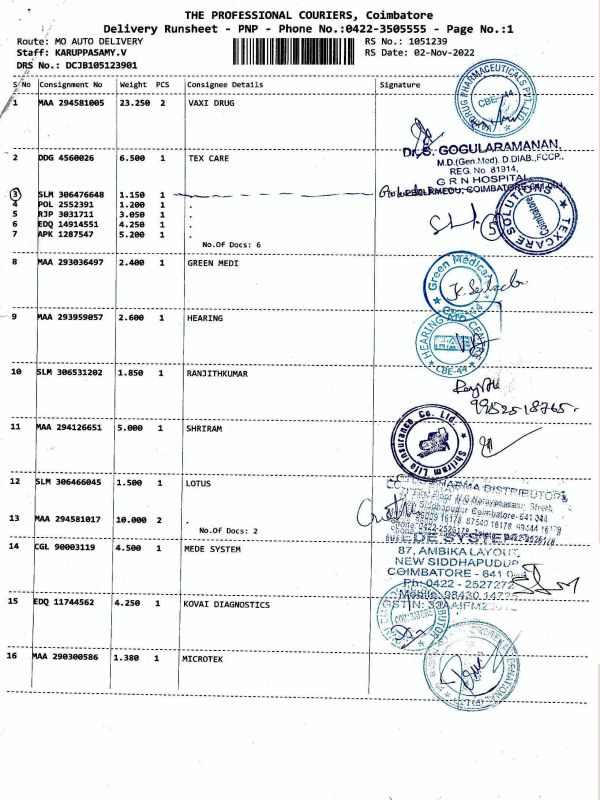 THE PROFESSIONAL COURIERS, Coimbatore
Delivery Runsheet - PNP - Phone No.:0422-3505555 - Page No.:1
Route: MO AUTO DELIVERY RS No.: 1051239
Staff: KARUPPASAMY.V RS Date: 02-Nov-2022
DRS No.: DCJB105123901
S/No Consignment No Weight PCS Consignee Details Signature
1 MAA 294581005 23.250 2 VAXI DRUG
CBE-44
Dr. S. GOGULARAMANAN,
M.D.(Gen.Med). D.DIAB.,FCCP.,
REG No 81914,
G R N HOSPITAL,
2 DDG 4560026 6.500 1 TEX CARE
3 SLM 306476648 1.150 1 .
COIMBATORE-641 004
4 POL 2552391 1.200 1 .
5 RJP 3031711 3.050 1 .
6 EDQ 14914551 4.250 1 .
7 APK 1287547 5.200 1 .
No.Of Docs: 6
TEXCARE SOLUTIONS
Coimbatore
8 MAA 293036497 2.400 1 GREEN MEDI
Green Medicals
9 MAA 293959057 2.600 1 HEARING
HEARING AID CENTRE
CBE-44
10 SLM 306531202 1.850 1 RANJITHKUMAR
9952518765.
11 MAA 294126651 5.000 1 SHRIRAM
Shriram Life Insurance Co. Ltd.
12 SLM 306466045 1.500 1 LOTUS
PHARMA DISTRIBUTORS
13 MAA 294581017 10.000 2 .
No.Of Docs: 2
14 CGL 90003119 4.500 1 MEDE SYSTEM
MEDE SYSTEM
87, AMBIKA LAYOUT,
NEW SIDDHAPUDUR
COIMBATORE - 641 044
Ph: 0422 - 2527272
15 EDQ 11744562 4.250 1 KOVAI DIAGNOSTICS
COIMBATORE
16 MAA 290300586 1.380 1 MICROTEK